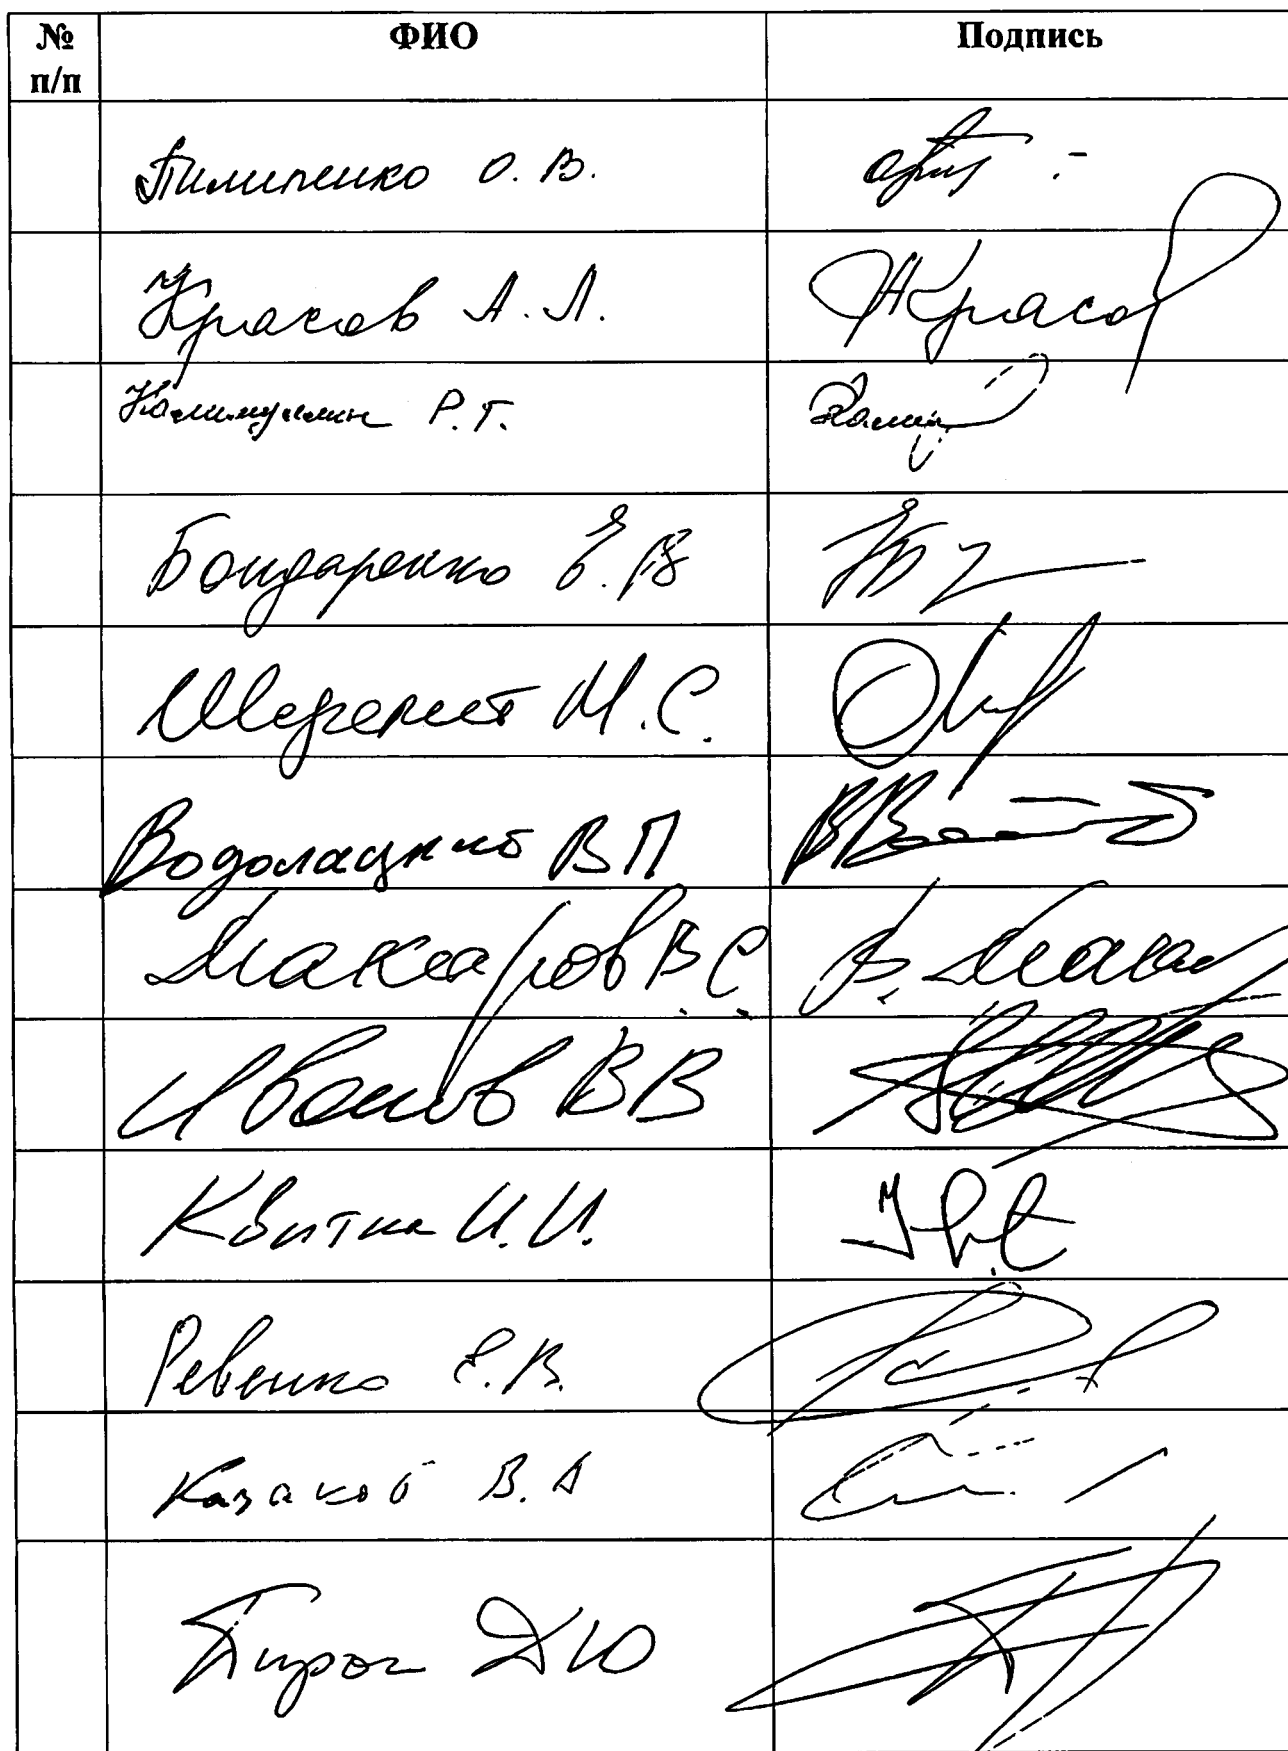 № п/п ФИО Подпись
Пилипенко О. В.
Красов А. Л. Красов
Калимуллин Р. Г.
Бондаренко Е. В
Шеремет М. С.
Водолацкий В П
Максаров В. С.
Иванов В В
Квитка И. И.
Ревенко Е. В.
Казаков В. А
Пирог Д Ю